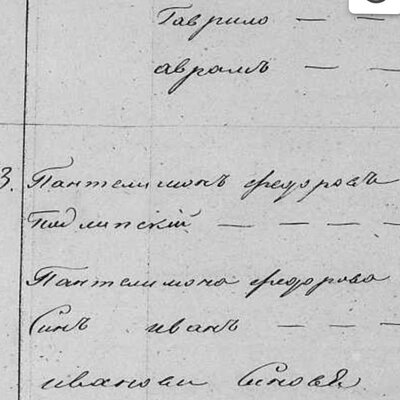 Гаврило — —
аврамъ — —
3. Пантелимонъ федоровъ
Подлипскій — — — —
Пантелимона федорова
Синъ иванъ — — —
иванови Синовья